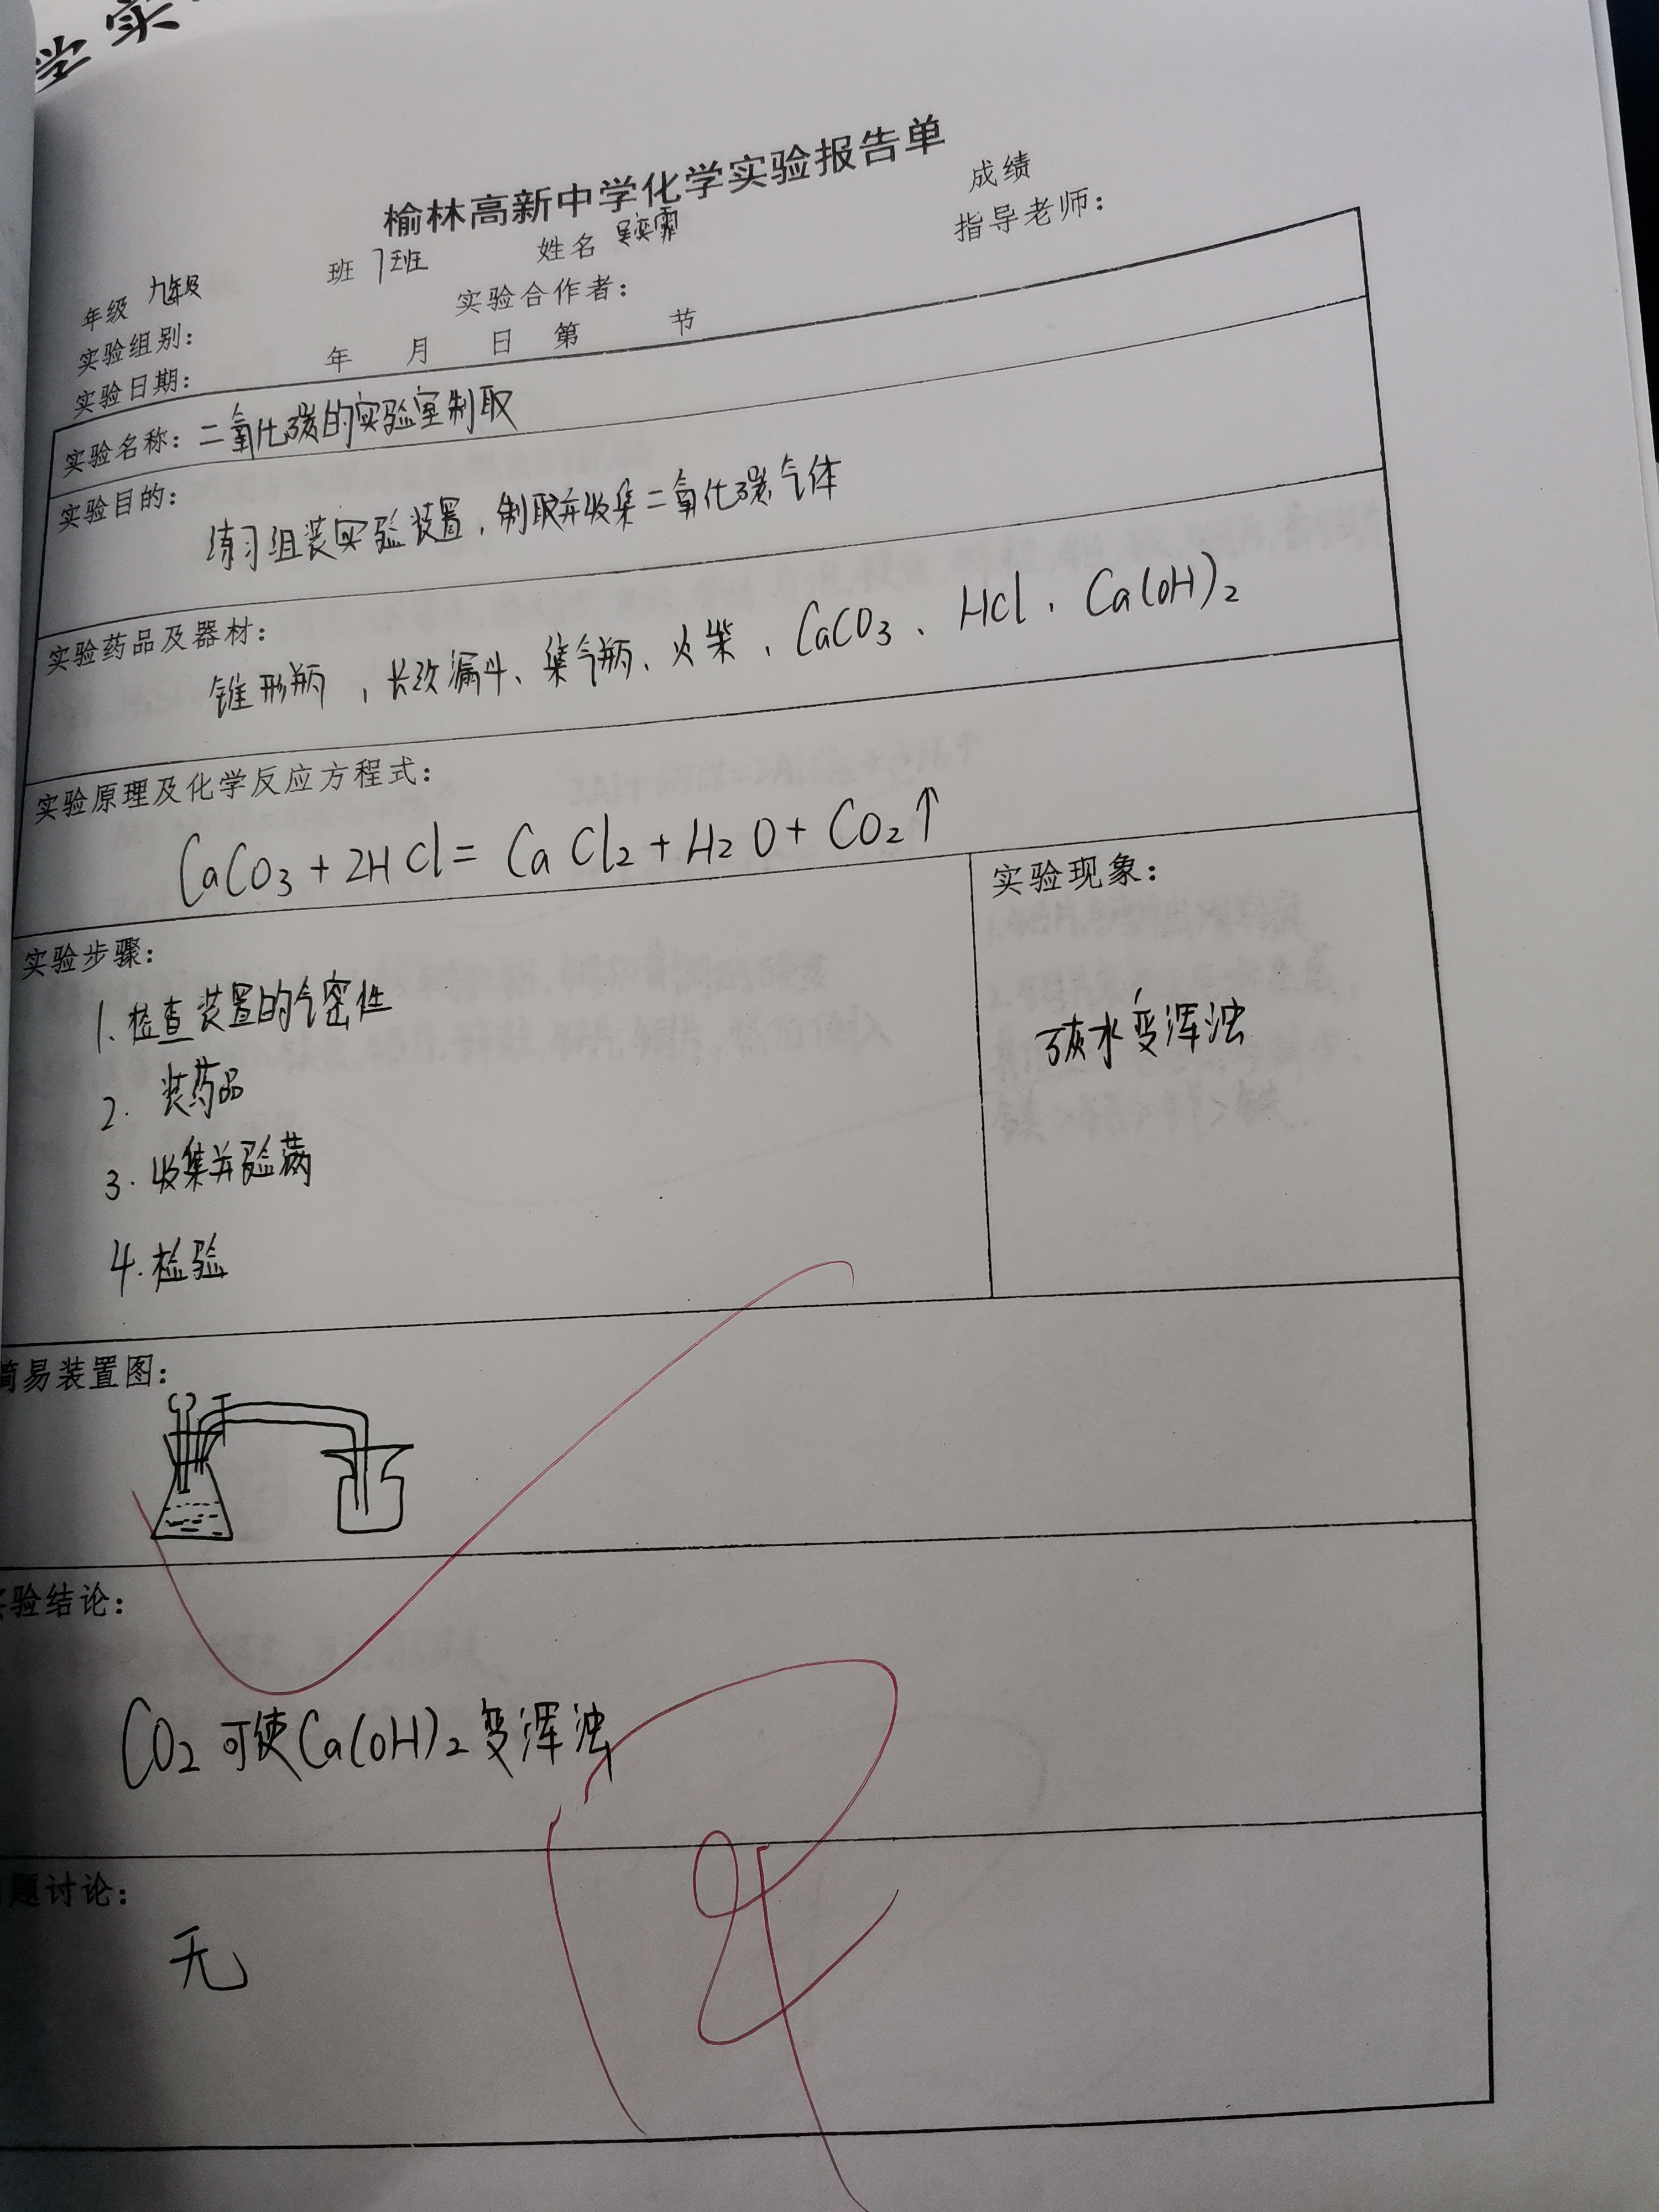 学实
榆林高新中学化学实验报告单
成绩
年级 九年级 班 7班 姓名 指导老师：
实验组别： 实验合作者：
实验日期： 年 月 日 第 节
实验名称：二氧化碳的实验室制取
实验目的：
练习组装实验装置，制取并收集二氧化碳气体
实验药品及器材：
锥形瓶，长颈漏斗、集气瓶、火柴，CaCO3、HCl，Ca(OH)2
实验原理及化学反应方程式：
CaCO3+2HCl=CaCl2+H2O+CO2↑
实验步骤：
1.检查装置的气密性
2.装药品
3.收集并验满
4.检验
实验现象：
碳水变浑浊
简易装置图：
验结论：
CO2可使Ca(OH)2变浑浊
题讨论：
无